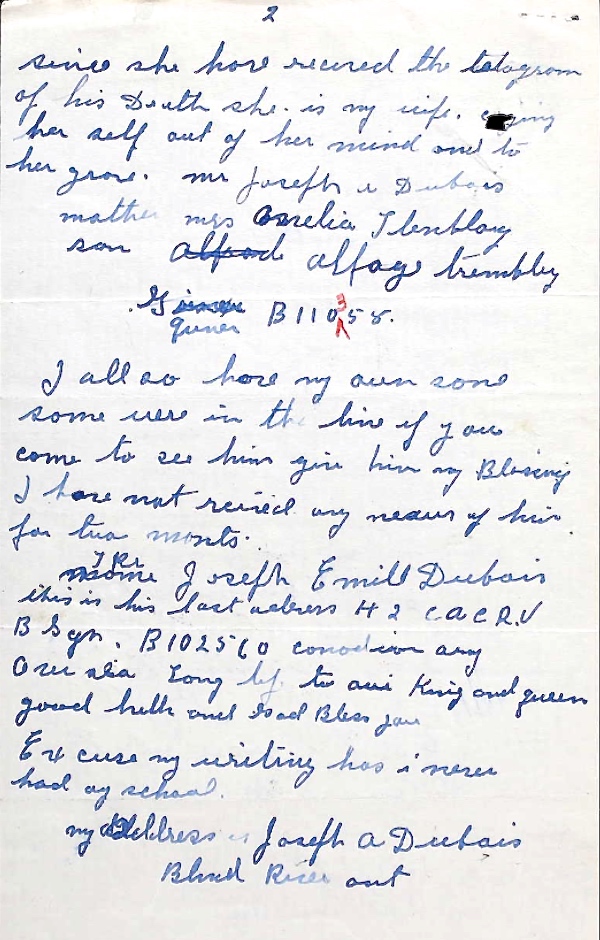 2
since she hove recived the telagram
of his Death she. is my wife.
her self out of her mind and to
her grove. mr Joseph a Dubois
mathe mrs Amelia Tlenblay
son alfage trembley
guner B110358.
I all so hove my own sone
some were in the line if you
come to see him give him my Blesing
I hove not recived any newes of him
for two monts.
Tpr Joseph Emill Dubois
this is his last adress # 2 C A C R.V
B Sqn. B102560 canadian army
Over sea Long life to our King and queen
good helth and God Bless you
Ex cuse my writing has i never
had ay school.
my address is Joseph A Dubois
Blind River ont